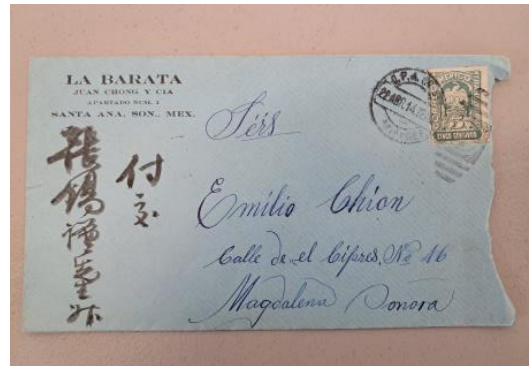 LA BARATA
JUAN CHONG Y CIA
APARTADO NUM. 2
SANTA ANA, SON., MEX.
Emilio Chion
Calle de el Cipres, No 46
Magdalena Sonora
付交
張錫
MEXICO
CINCO CENTAVOS